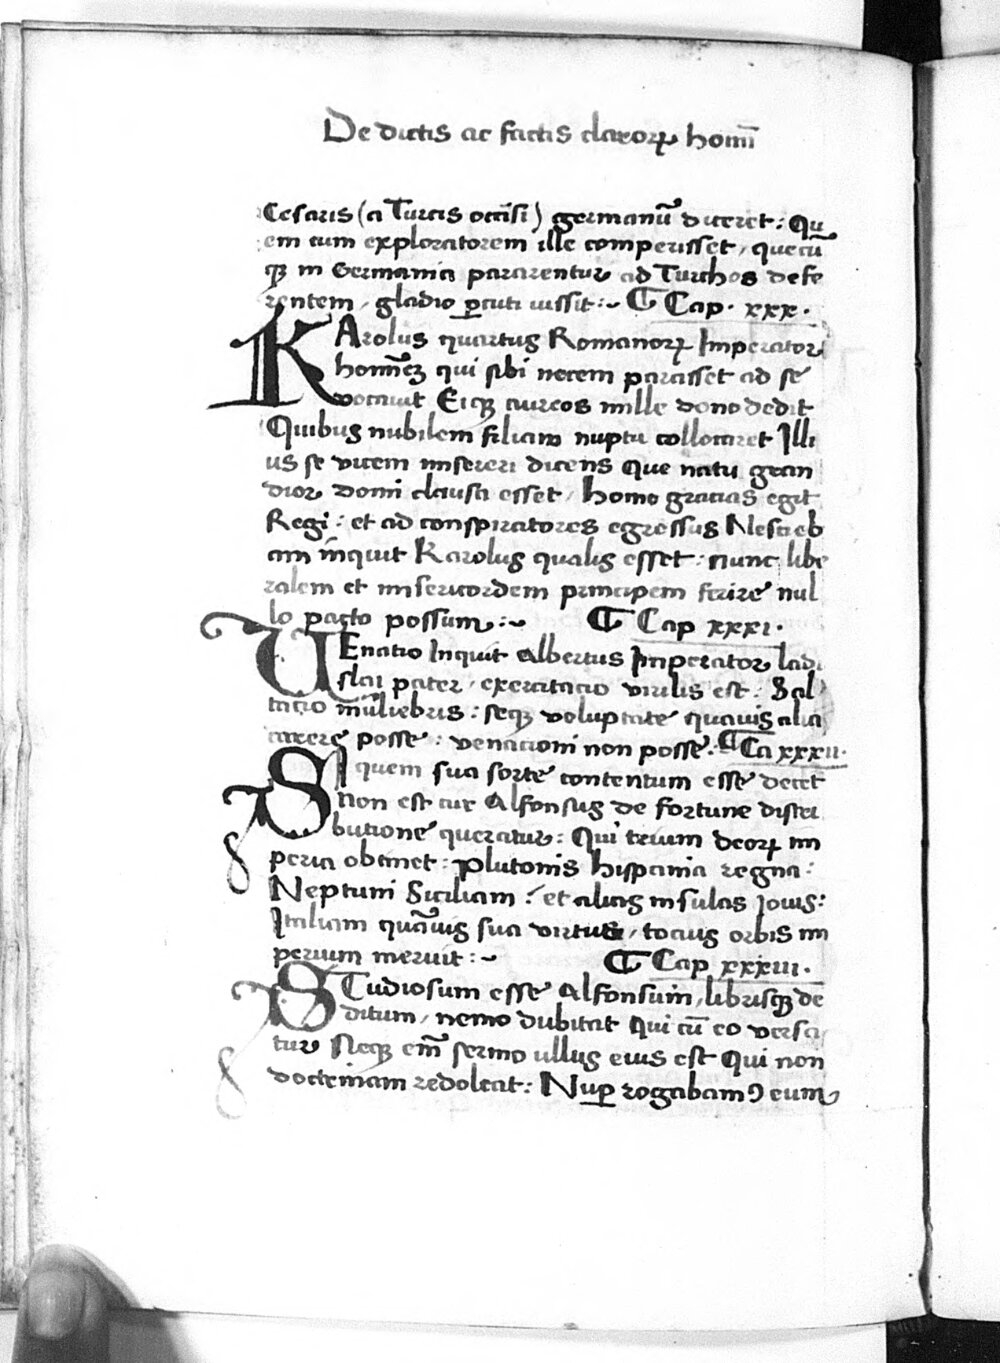 De dictis ac factis clarorꝝ homī
Cesaris (a Turcis occīsi) germanū diceret: Qu
em cum exploratorem ille comperisset, quecū
qꝫ in Germania pararentur ad Turchos defe
rentem, gladio ꝑcuti iussit:~ ¶ Cap. xxx.
KArolus quartus Romanorꝝ Imperator
homīeꝫ qui sibi necem parasset ad se
vocauit Eiqꝫ aureos mille dono dedit
Quibus nubilem filiam nuptu collocaret Illi
us se vicem misereri dicens que natu gran
dior domi clausa esset, homo gracias egit
Regi: et ad conspiratores egressus Nescieb
am inquit Karolus qualis esset: nunc libe
ralem et misericordem principem ferire nul
lo pacto possum:~ ¶ Cap xxxi.
UEnatio Inquit Albertus Imperator ladi
slai pater, exercitacio virilis est: Sal
tacio muliebris: seqꝫ voluptate quauis alia
carere posse: venacioni non posse. ¶ Ca xxxii.
SI quem sua sorte contentum esse decet
non est cur Alfonsus de fortune distri
butione queratur: Qui trium deorꝝ im
peria obtinet: Plutonis hispania regna:
Neptuni Siciliam: et alias insulas Iouis:
Italiam quāuis sua virtus, tocius orbis im
perium meruit:~ ¶ Cap xxxiii.
STudiosum esse Alfonsum, librisqꝫ de
ditum, nemo dubitat Qui cū eo versa
tur Neqꝫ em̄ sermo ullus eius est Qui non
doctrinam redoleat: Nuꝑ rogabam eum